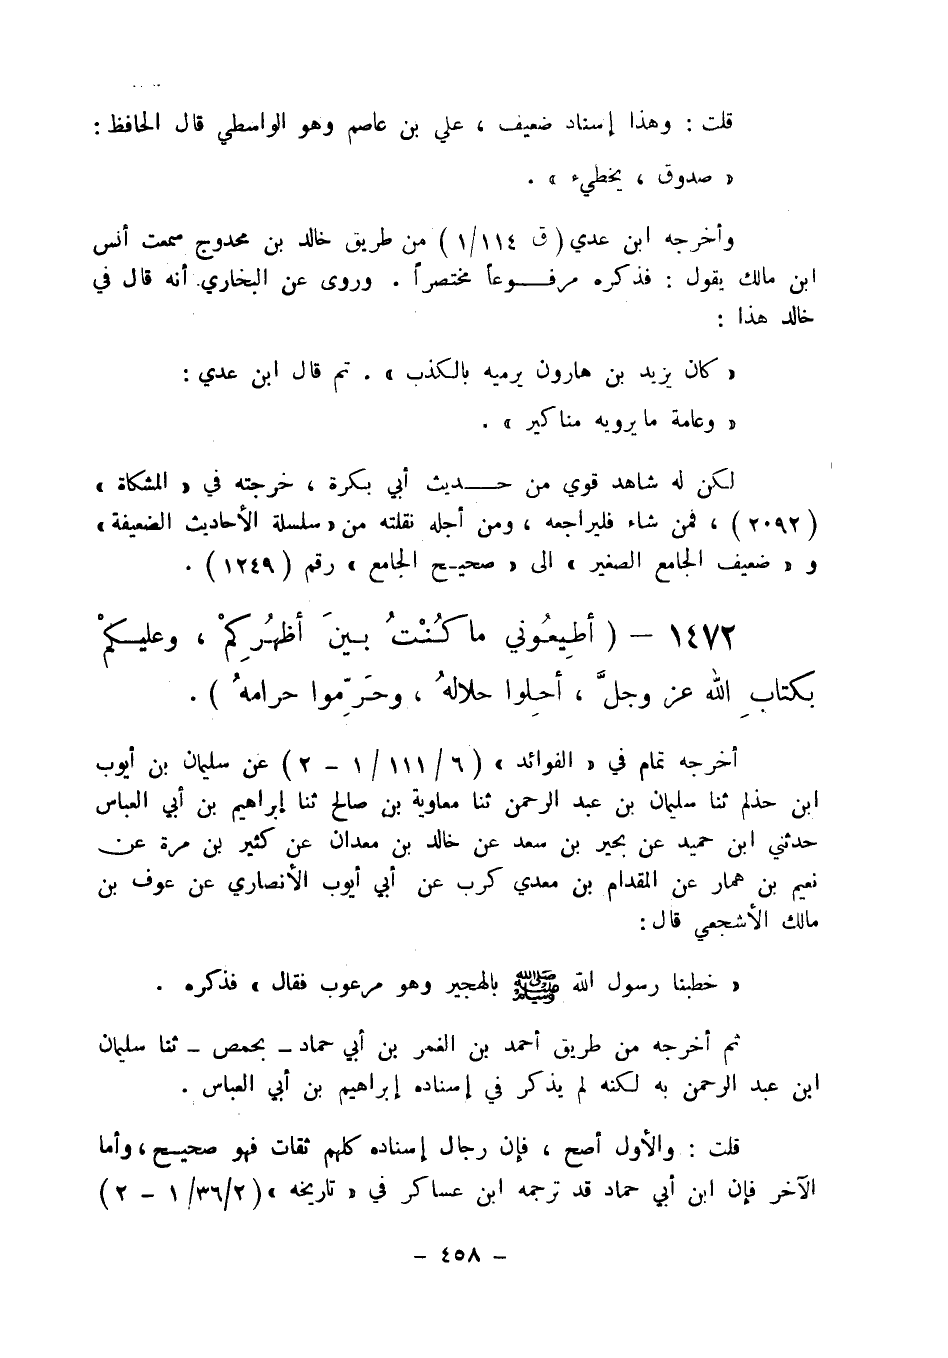 قلت : وهذا إسناد ضعيف ، علي بن عاصم وهو الواسطي قال الحافظ :
« صدوق ، يخطيء » .
وأخرجه ابن عدي ( ق ١/١١٤ ) من طريق خالد بن محدوج سمعت أنس
ابن مالك يقول : فذكره مرفــوعاً مختصراً . وروى عن البخاري أنه قال في
خالد هذا :
« كان يزيد بن هارون يرميه بالكذب » . ثم قال ابن عدي :
« وعامة ما يرويه مناكير » .
لكن له شاهد قوي من حــديث أبي بكرة ، خرجته في « المشكاة »
( ٢٠٩٢ ) ، فمن شاء فليراجعه ، ومن أجله نقلته من « سلسلة الأحاديث الضعيفة »
و « ضعيف الجامع الصغير » الى « صحيـح الجامع » رقم ( ١٢٤٩ ) .
١٤٧٢ – ( أطِيعُوني ما كُنْتُ بينَ أظهُرِكمْ ، وعليـكمْ
بكتابِ اللّه عز وجلَّ ، أحِلوا حلالهُ ، وحَرِّموا حرامهُ ) .
أخرجه تمام في « الفوائد » ( ٦/ ١١١/ ١ – ٢ ) عن سليمان بن أيوب
ابن حذلم ثنا سليمان بن عبد الرحمن ثنا معاوية بن صالح ثنا إبراهيم بن أبي العباس
حدثني ابن حميد عن بحير بن سعد عن خالد بن معدان عن كثير بن مرة عن
نعيم بن همار عن المقدام بن معدي كرب عن أبي أيوب الأنصاري عن عوف بن
مالك الأشجعي قال :
« خطبنا رسول اللّه ﷺ بالهجير وهو مرعوب فقال » فذكره .
ثم أخرجه من طريق أحمد بن الغمر بن أبي حماد – بحمص – ثنا سليمان
ابن عبد الرحمن به لكنه لم يذكر في إسناده إبراهيم بن أبي العباس .
قلت : والأول أصح ، فإن رجال إسناده كلهم ثقات فهو صحيـح ، وأما
الآخر فإن ابن أبي حماد قد ترجمه ابن عساكر في « تاريخه » ( ٢/ ٣٦/ ١ – ٢ )
– ٤٥٨ –